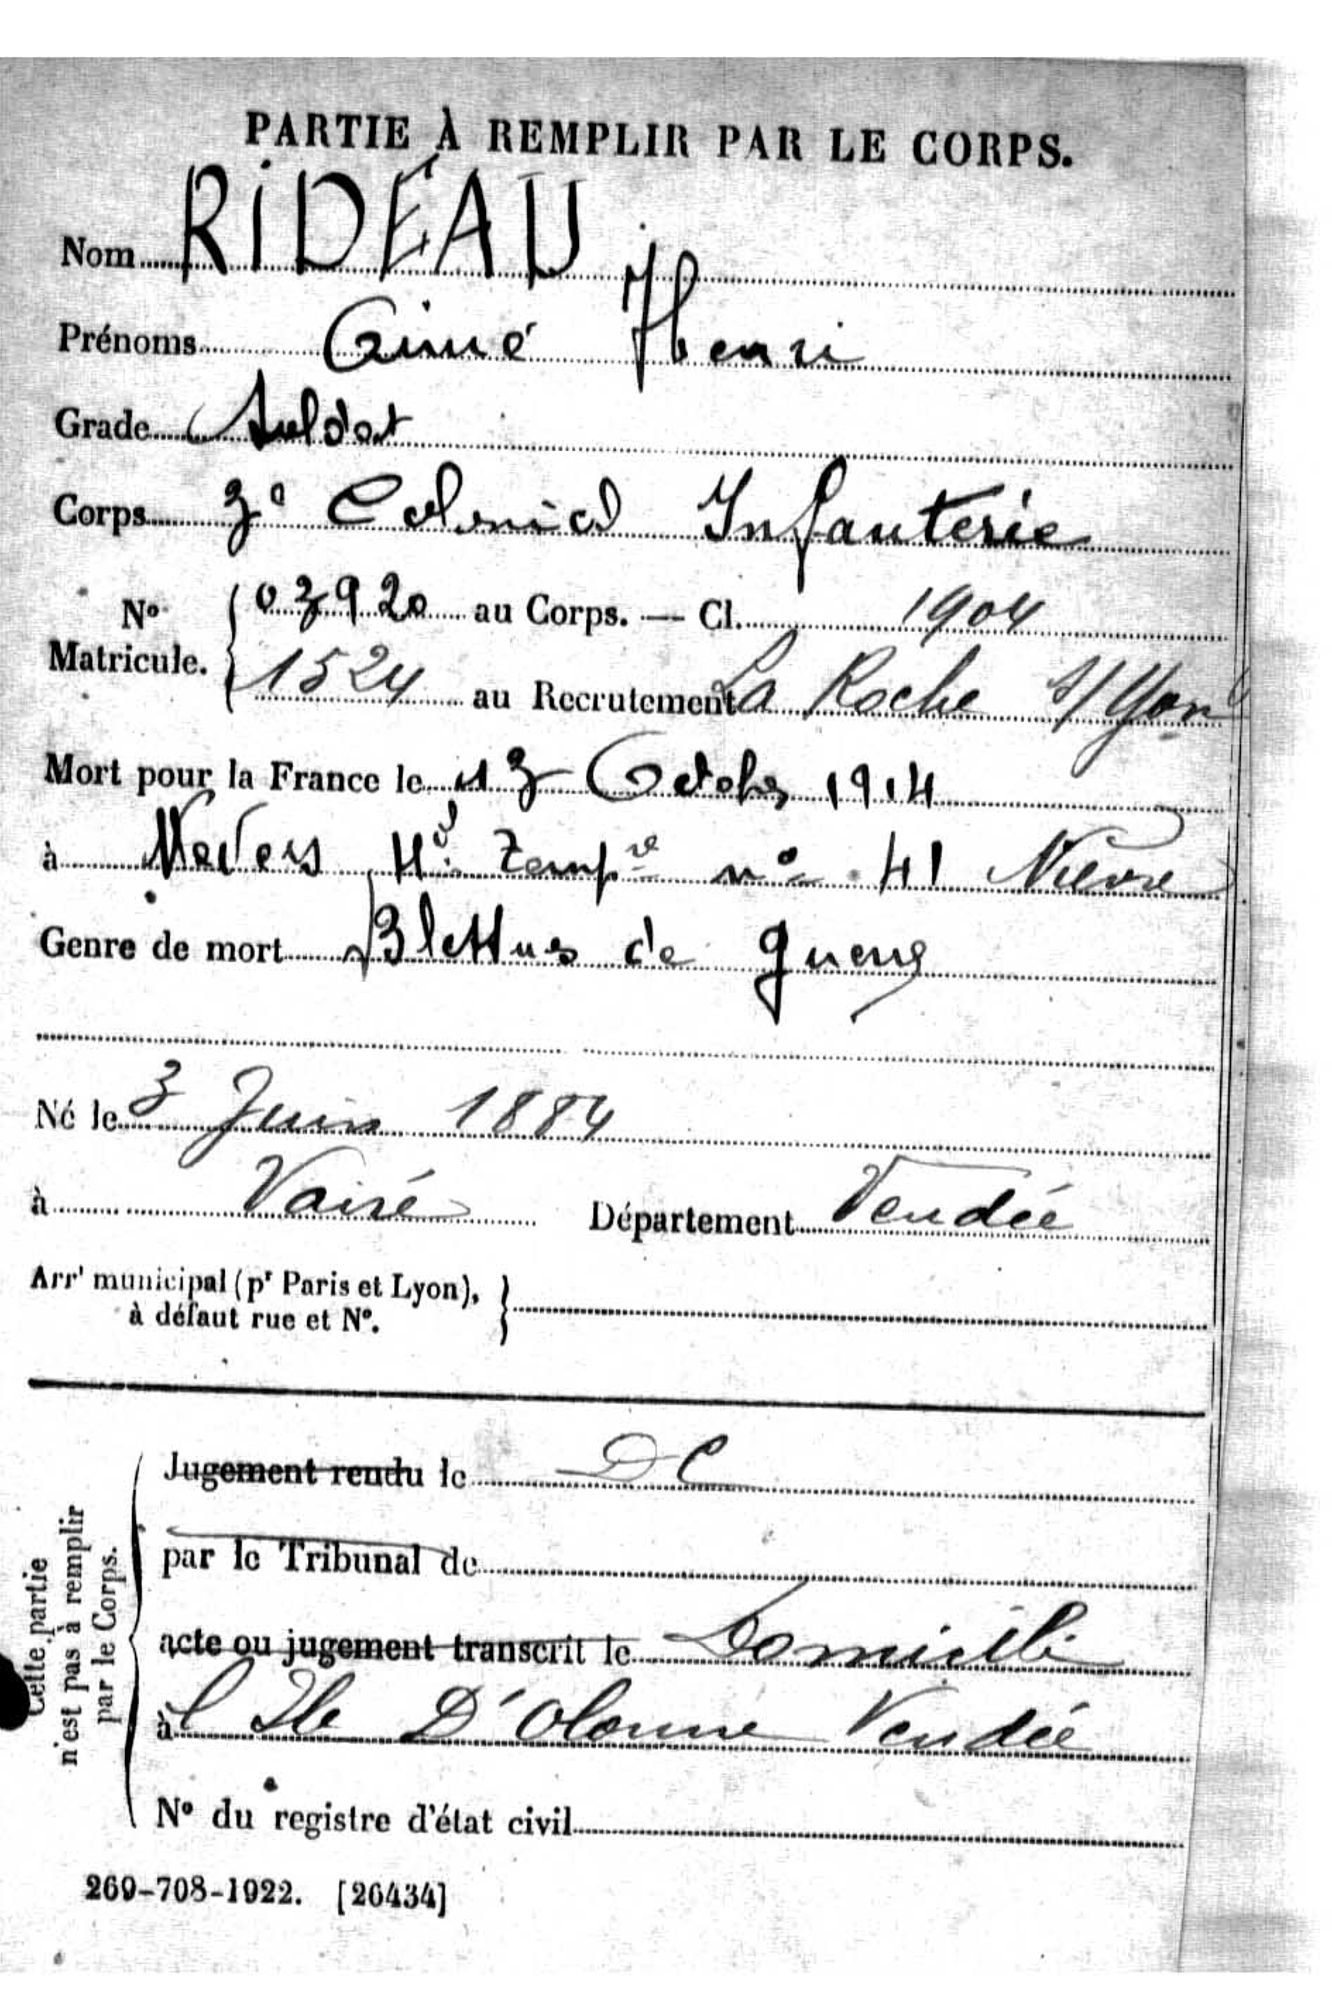 PARTIE À REMPLIR PAR LE CORPS.
Nom RIDEAU
Prénoms Aimé Henri
Grade Soldat
Corps 3e Colonial Infanterie
No Matricule. { 03920 au Corps. — Cl. 1904
1524 au Recrutement La Roche s/Yon
Mort pour la France le 13 Octobre 1914
à Nevers Hal tempre no 41 Nièvre
Genre de mort Blessures de guerre
Né le 3 Juin 1884
à Vairé Département Vendée
Arrt municipal (pr Paris et Lyon), }
à défaut rue et N°.
Cette partie
n'est pas à remplir
par le Corps.
Jugement rendu le DC
par le Tribunal de
acte ou jugement transcrit le Domicilié
à l'Ile D'Olonne Vendée
N° du registre d'état civil
269-708-1922. [26434]